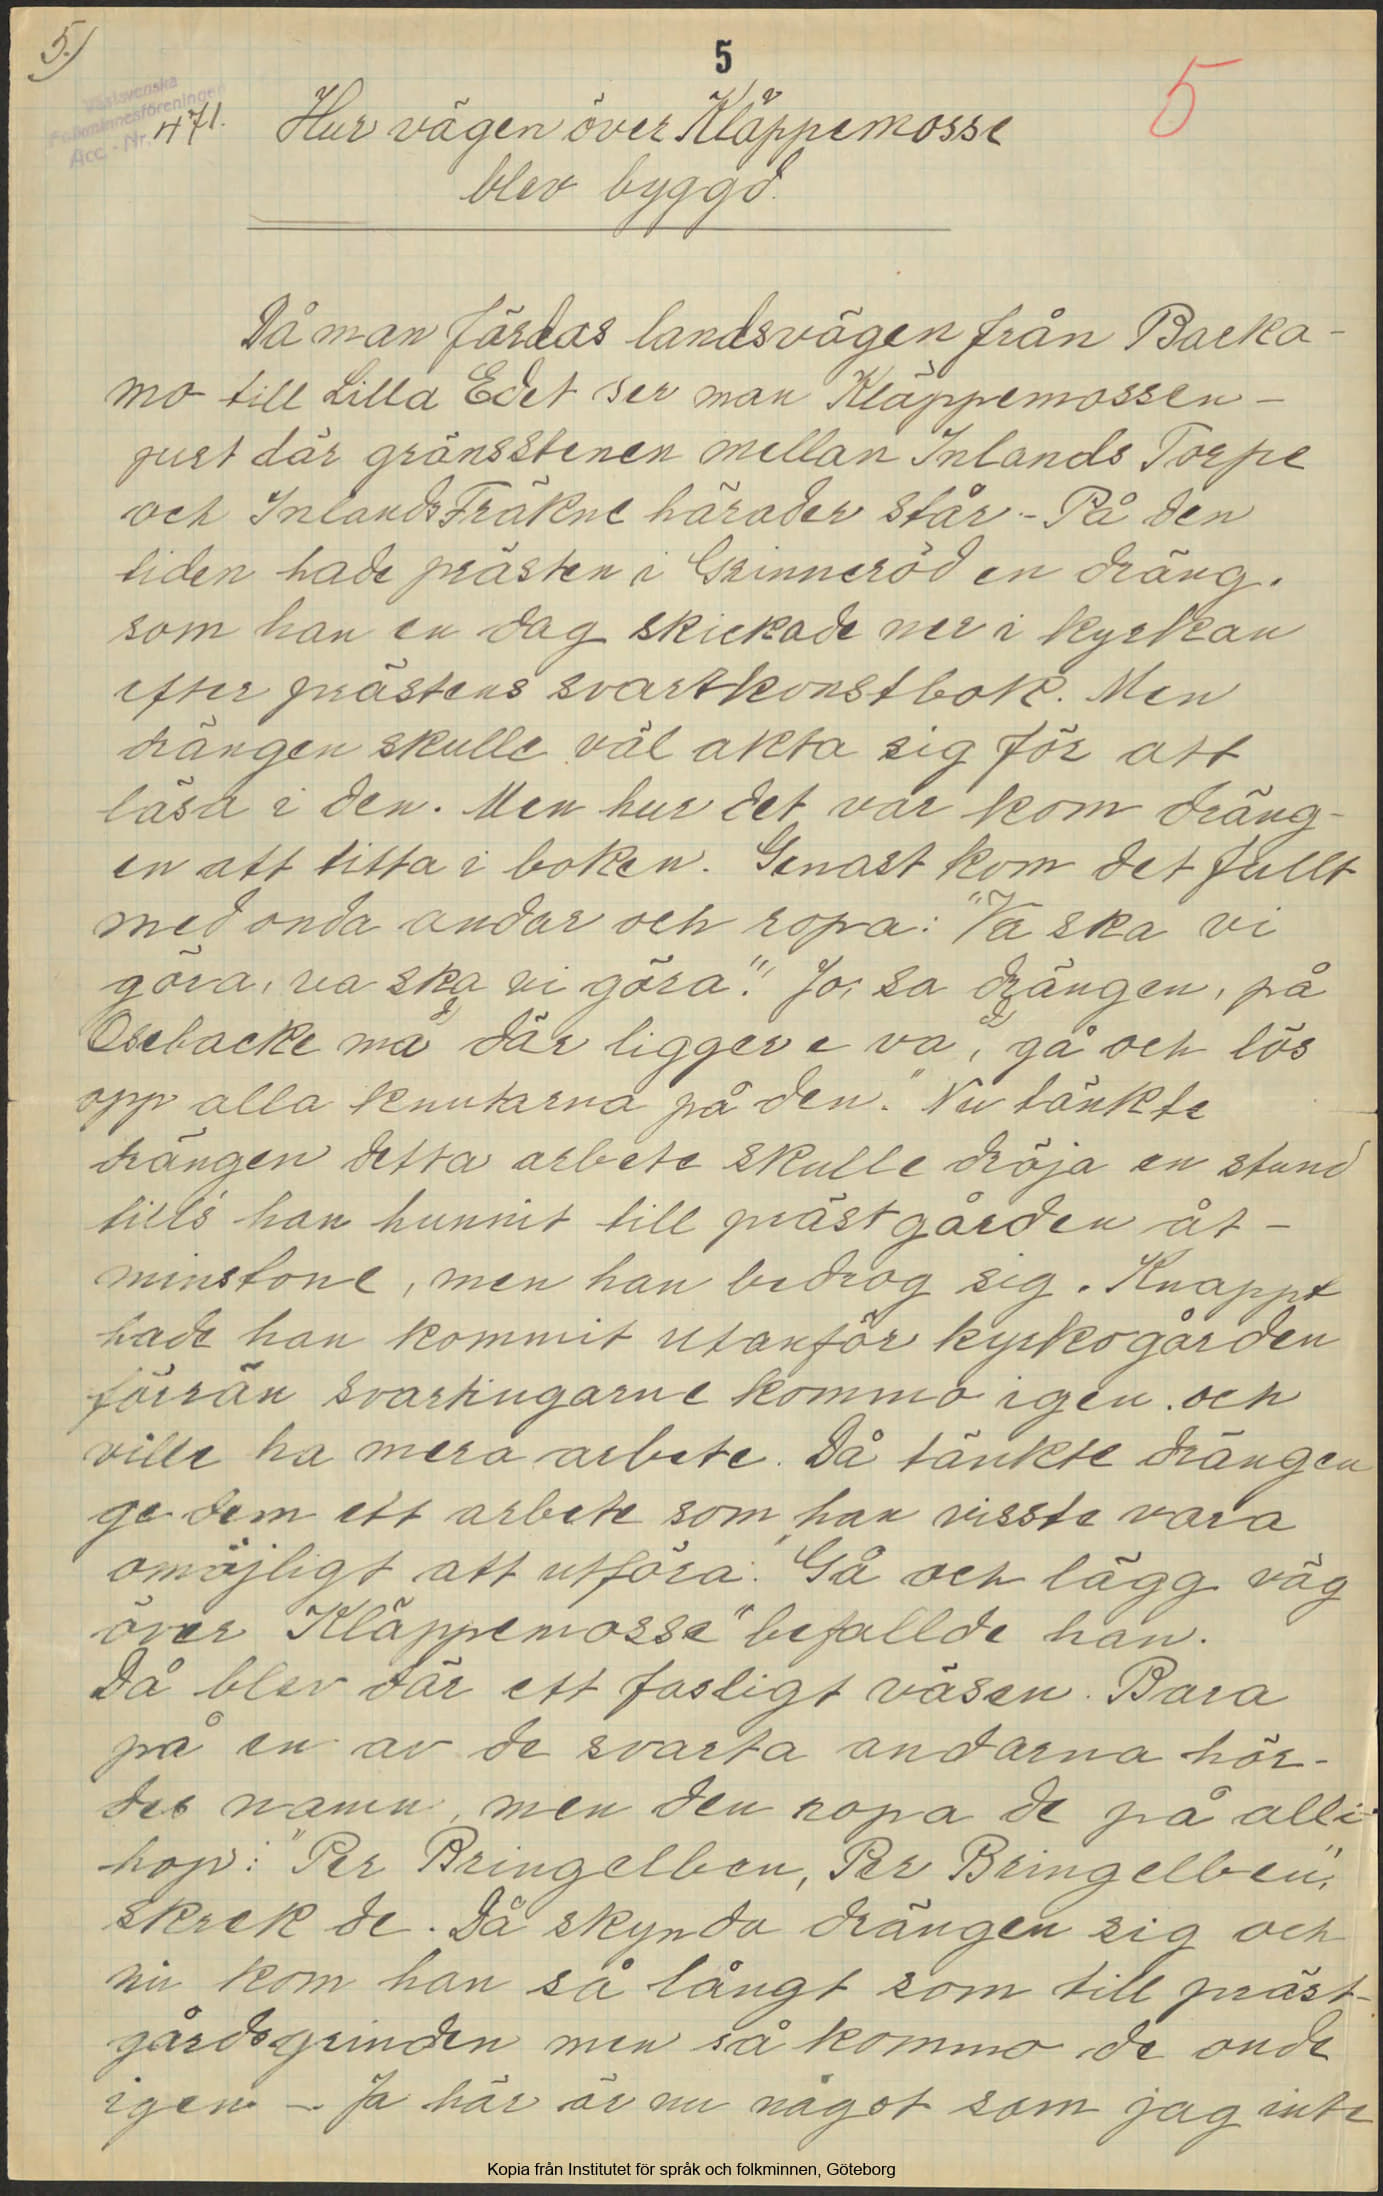 5.)
5
5
Västsvenska
Folkminnesföreningen
Acc. - Nr. 471.
Hur vägen över Kläppemosse
blev byggd.
Då man färdas landsvägen från Backa-
mo till Lilla Edet ser man Kläppemossen -
just där gränsstenen mellan Inlands Torpe
och Inlands Fräkne härader står. - På den
tiden hade prästen i Grinneröd en dräng.
som han en dag skickade ner i kyrkan
efter prästens svartkonstbok. Men
drängen skulle väl akta sig för att
läsa i den. Men hur det var kom dräng-
en att titta i boken. Genast kom det fullt
med onda andar och ropa: "Va ska vi
göra, va ska vi göra". "Jo, sa drängen, på
Osebacke må där ligger e va, gå och lös
opp alla knutarna på den." Nu tänkte
drängen detta arbete skulle dröja en stund
tills han hunnit till prästgården åt-
minstone, men han bedrog sig. Knappt
hade han kommit utanför kyrkogården
förrän svartingarne kommo igen och
ville ha mera arbete. Då tänkte drängen
ge dem ett arbete som han visste vara
omöjligt att utföra: "Gå och lägg väg
över Kläppemosse" befallde han.
Då blev där ett fasligt väsen. Bara
på en av de svarta andarna hör-
des namn, men den ropa de på alli-
hop: "Per Bringelben, Per Bringelben",
skrek de. Då skynda drängen sig och
nu kom han så långt som till präst-
gårdsgrinden men så kommo de onde
igen - Ja här är nu något som jag inte
Kopia från Institutet för språk och folkminnen, Göteborg